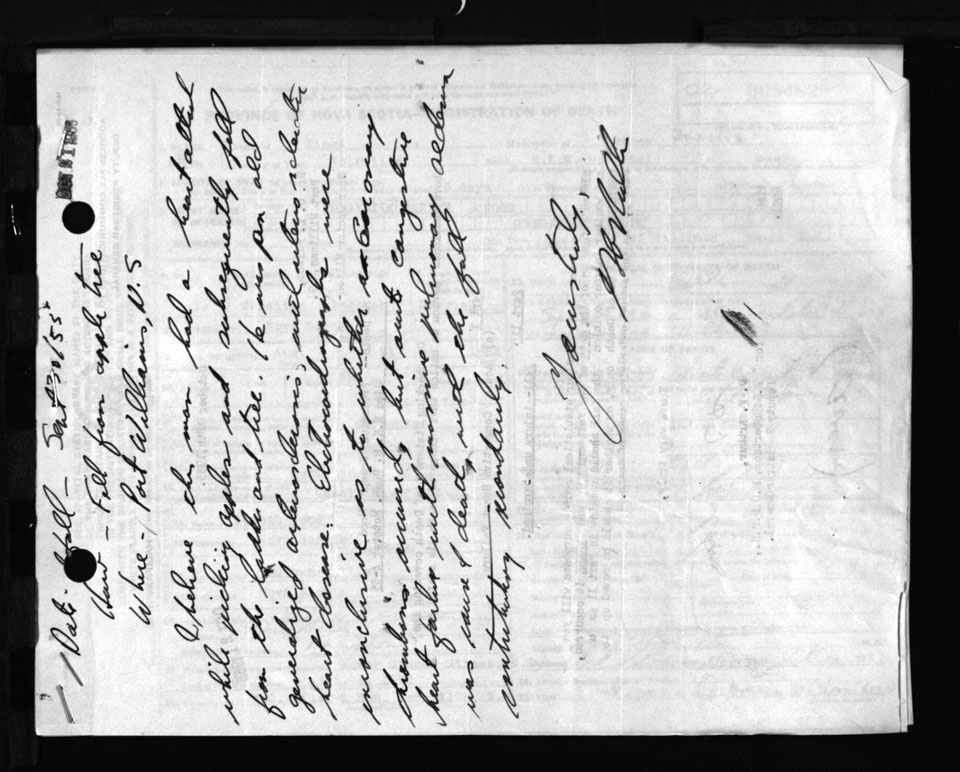 Date of fall - Sept 30/55
How - Fell from apple tree
Where - Port Williams, N.S
I believe this man had a heart attack
while picking apples and subsequently fell
from the ladder and tree. He was an old
generalized arteriosclerosis, with arteriosclerotic
heart disease. Electrocardiograms were
inconclusive as to whether a coronary
thrombosis occurred, but acute congestive
heart failure with massive pulmonary oedema
was cause of death, with the fall
contributory secondarily.
Yours truly,